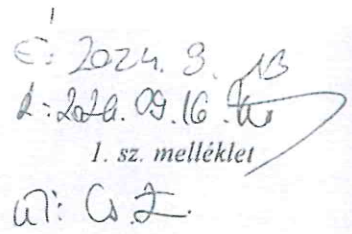 É: 2024. 9. 13
Á: 2024. 09. 16.
1. sz. melléklet
Üi: Cs. Z.